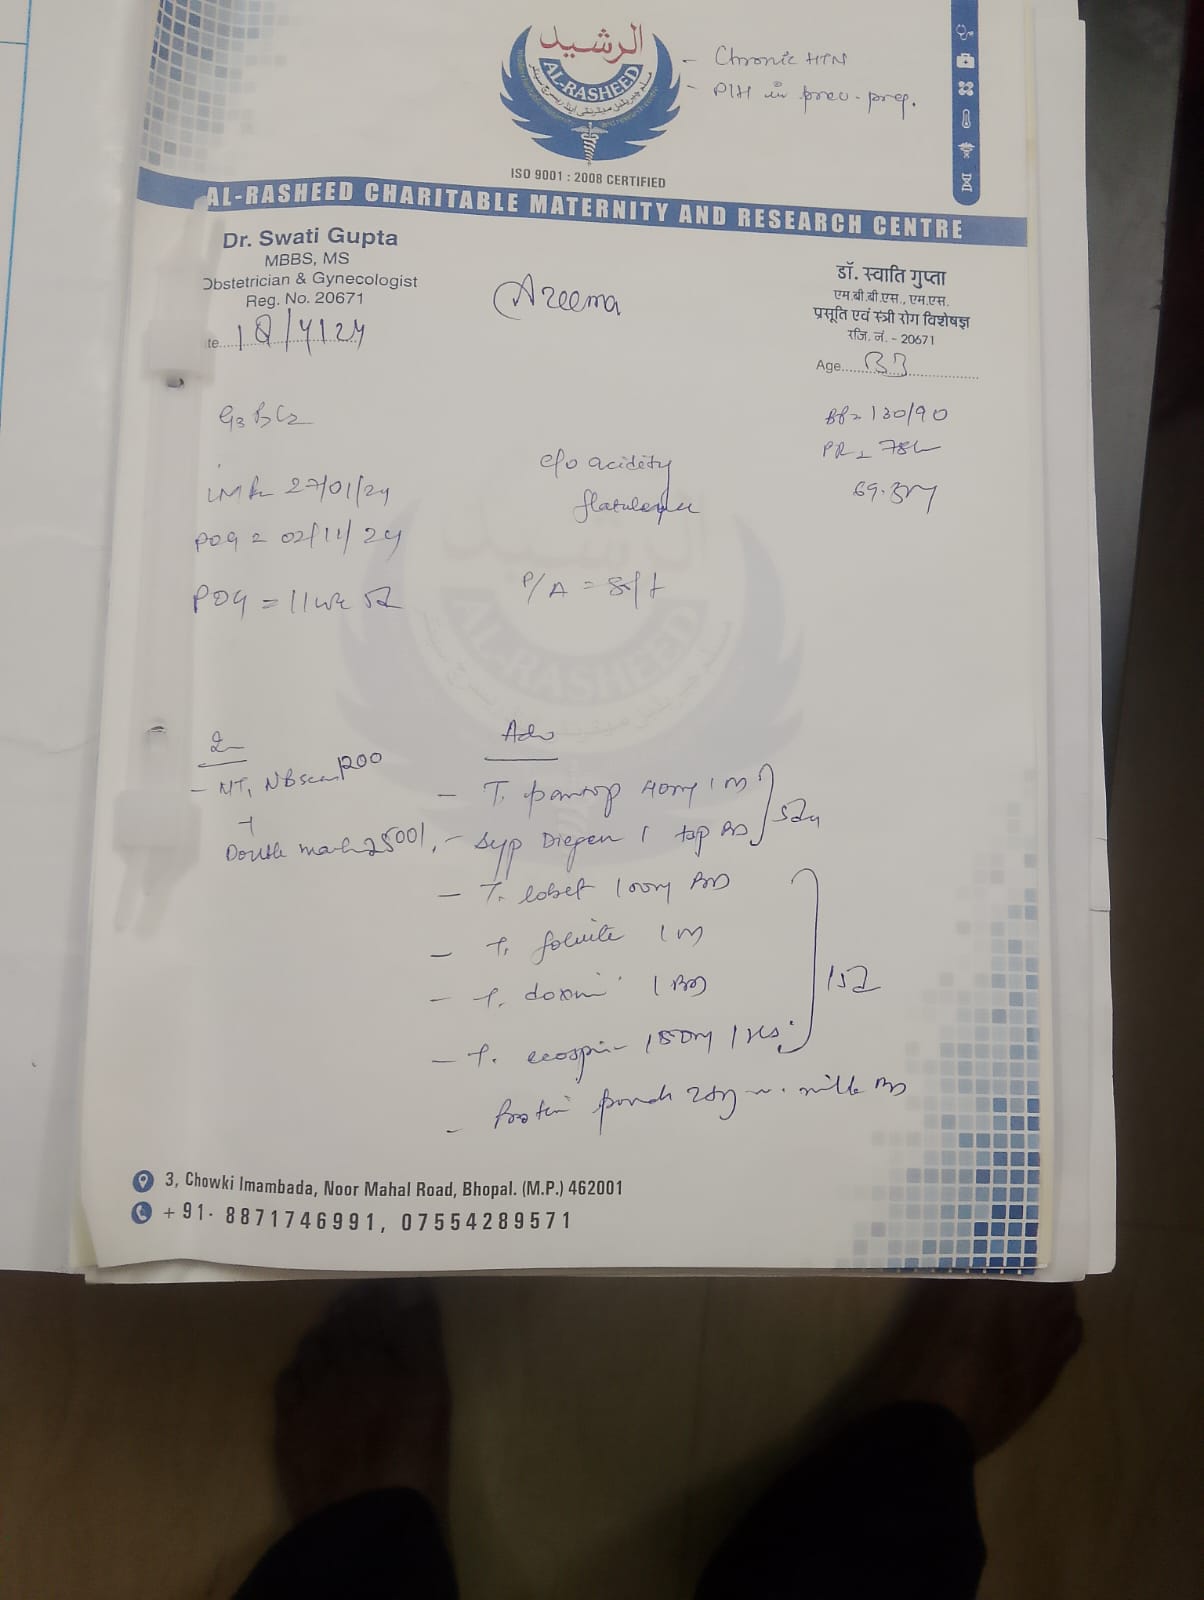 الرشيد
AL-RASHEED
ISO 9001 : 2008 CERTIFIED
- Chronic HTN
- PIH in prev. preg.
AL-RASHEED CHARITABLE MATERNITY AND RESEARCH CENTRE
Dr. Swati Gupta
MBBS, MS
Obstetrician & Gynecologist
Reg. No. 20671
डॉ. स्वाति गुप्ता
एम.बी.बी.एस., एम.एस.
प्रसूति एवं स्त्री रोग विशेषज्ञ
रजि. नं. - 20671
Azeema
te....18/4/24
Age....33
BP = 130/90
PR = 78
c/o acidity
LMP 27/01/24
= 02/11/24
POG = 11 wk 5d
P/A = soft
Adv
- NT, NB scan 1200
+
Double 2500/
- T. pantop 40mg 1
- Syp Diegen 1
- T. lobet 100mg BD
- T. folvite 1
- T. 1 BD
- T. ecospin 150mg 1 HS
- Protein milk BD
3, Chowki Imambada, Noor Mahal Road, Bhopal. (M.P.) 462001
+91- 8871746991, 07554289571